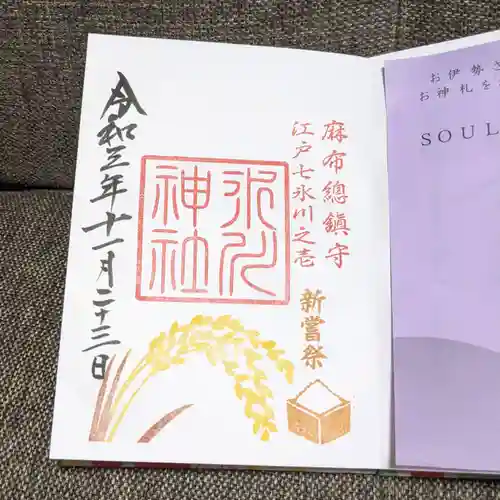 麻布總鎮守
江戸七氷川之壱
氷川
神社
新嘗祭
令和三年十一月二十三日
お伊勢さ
お神札を
SOUL